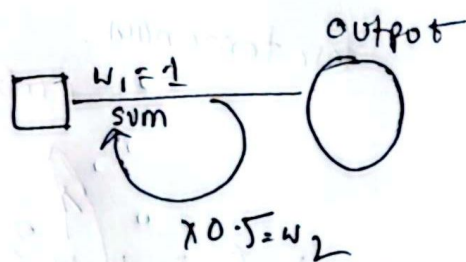 output
w₁ = 1
sum
x0.5 = w₂